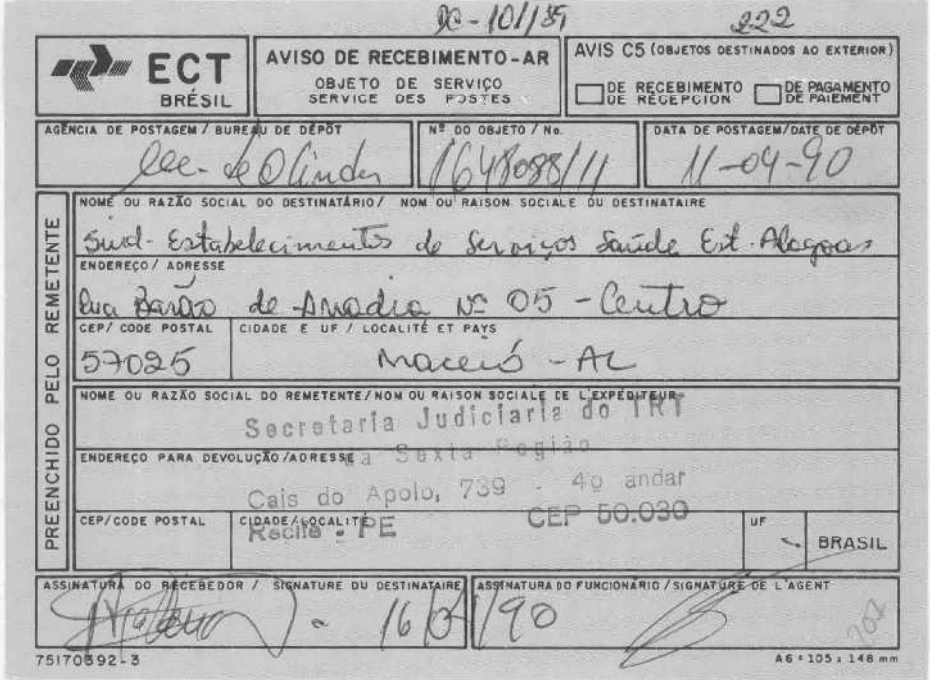 DC - 101/89 222
ECT
BRÉSIL
AVISO DE RECEBIMENTO - AR
OBJETO DE SERVIÇO
SERVICE DES POSTES
AVIS C5 (OBJETOS DESTINADOS AO EXTERIOR)
DE RECEBIMENTO
DE RÉCEPCION
DE PAGAMENTO
DE PAIEMENT
AGÊNCIA DE POSTAGEM / BUREAU DE DÉPÔT
de Olinda
Nº DO OBJETO / No.
1648088/11
DATA DE POSTAGEM/DATE DE DÉPÔT
11-04-90
PREENCHIDO PELO REMETENTE
NOME OU RAZÃO SOCIAL DO DESTINATÁRIO / NOM OU RAISON SOCIALE DU DESTINATAIRE
Sind- Estabelecimentos de Serviços Saúde Est. Alagoas
ENDEREÇO / ADRESSE
Rua Barão de Anadia Nº 05 - Centro
CEP/ CODE POSTAL
57025
CIDADE E UF / LOCALITÉ ET PAYS
Maceió - AL
NOME OU RAZÃO SOCIAL DO REMETENTE/NOM OU RAISON SOCIALE DE L'EXPÉDITEUR
Secretaria Judiciaria do TRT
da Sexta Região
ENDEREÇO PARA DEVOLUÇÃO/ADRESSE
Cais do Apolo, 739 - 4º andar
CEP/CODE POSTAL
CIDADE/LOCALITÉ
Recife - PE CEP 50.030
UF
BRASIL
ASSINATURA DO RECEBEDOR / SIGNATURE DU DESTINATAIRE
16/04/90
ASSINATURA DO FUNCIONÁRIO / SIGNATURE DE L'AGENT
75170392-3
A6 = 105 x 148 mm